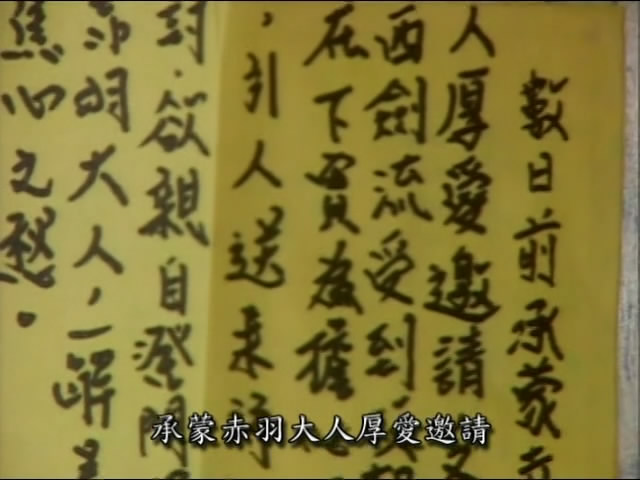 數日前承蒙
人厚愛邀請
西劍流受到
在下買為
，引人送来
欲親自澄
羽大人，一解
焦心之愁。
承蒙赤羽大人厚愛邀請